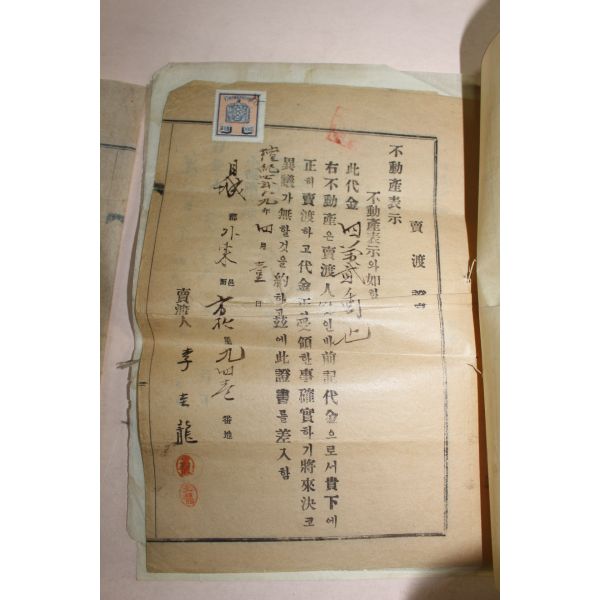 賣渡證書
不動產表示
不動產表示와如함
此代金
右不動產은賣渡人 인바前記代金으로서貴下에
正히賣渡하고代金正히受領한事確實하기將來決코
異議가無할것을約하고玆에此證書를差入함
檀紀四二八九年四月 日
月城郡外東面 里九四 番地
賣渡人 李圭龍